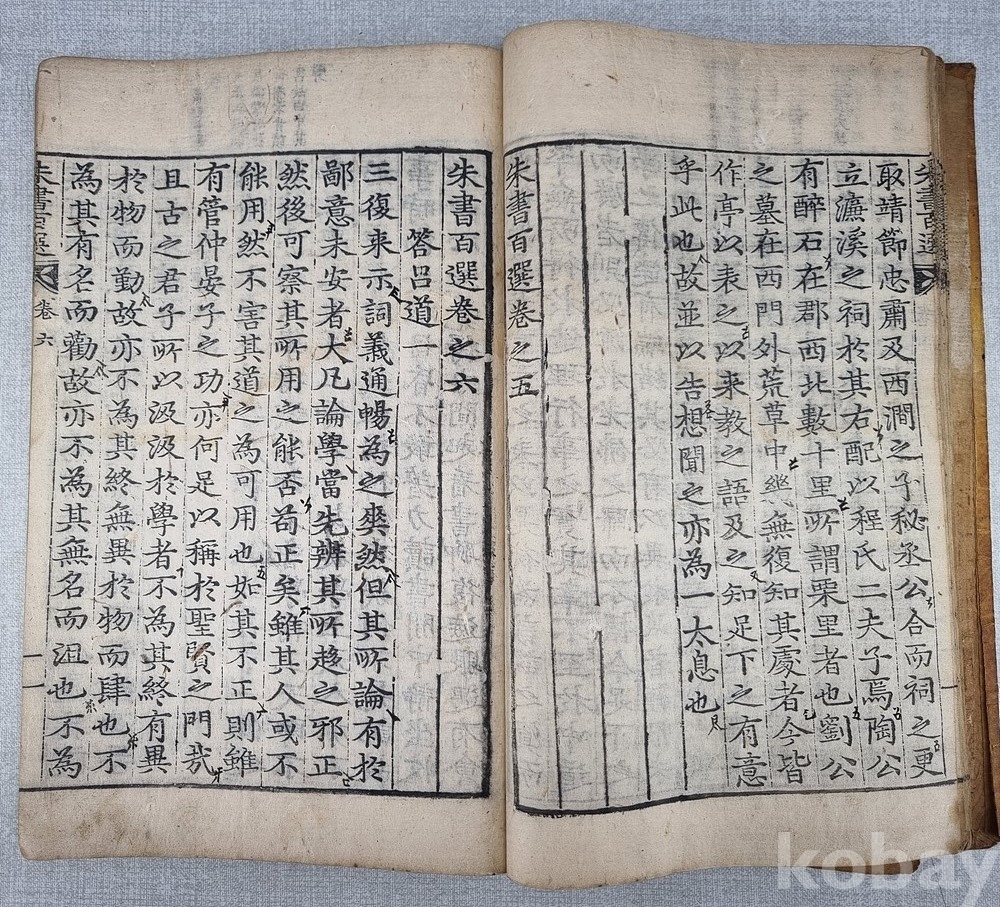 朱書百選
取靖節忠肅及西澗之子秘丞公合而祠之更
立濂溪之祠於其右配以程氏二夫子焉陶公
有醉石在郡西北數十里所謂栗里者也劉公
之墓在西門外荒草中幾無復知其處者今皆
作亭以表之以来教之語及之知足下之有意
乎此也故並以告想聞之亦為一太息也
朱書百選卷之五
朱書百選卷之六
答呂道一
三復来示詞義通暢為之爽然但其所論有於
鄙意未安者大凡論學當先辨其所趍之邪正
然後可察其所用之能否苟正矣雖其人或不
能用然不害其道之為可用也如其不正則雖
有管仲晏子之功亦何足以稱於聖賢之門哉
且古之君子所以汲汲於學者不為其終有異
於物而勤故亦不為其終無異於物而肆也不
為其有名而勸故亦不為其無名而沮也不為
朱書百選 卷六 一
kobay